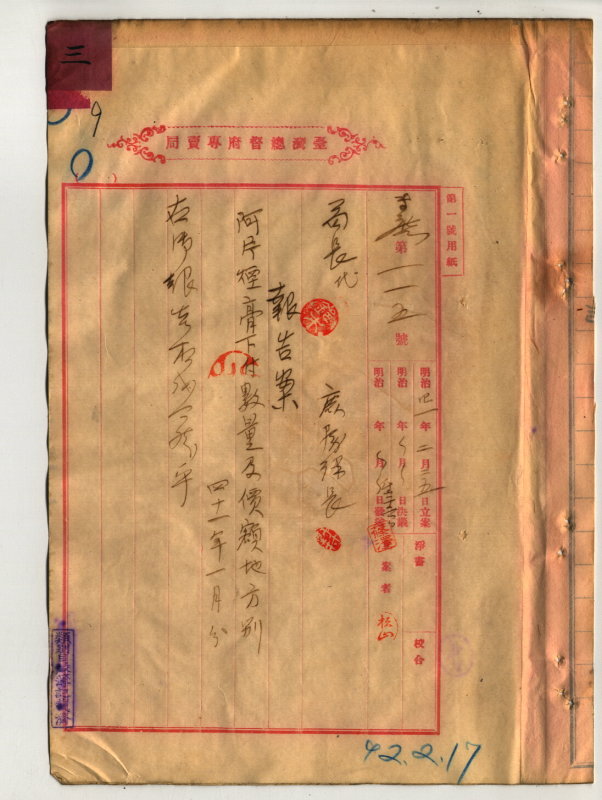 三
9
臺灣總督府專賣局
第一號用紙
第一一五號
明治四一年二月二五日立案
明治 年 月 日決議
明治 年 月 日發送
淨書
校合
案者
松山
局長代
庶務課長
報告案
阿片煙膏下付數量及價額地方別
四十一年一月分
右御報告相成可然乎
42.2.17